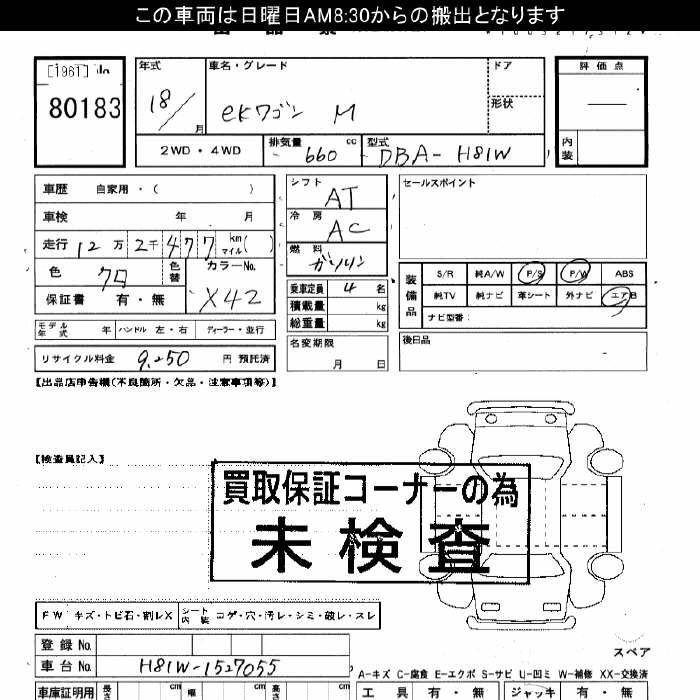 この車両は日曜日AM8:30からの搬出となります
[1961]
80183
年式 車名・グレード ドア 評価点
18/ 月 eKワゴン M 形状
2WD・4WD 排気量 660 cc 型式 DBA-H81W 内装
車歴 自家用・( )
車検 年 月
走行 12万2千477 km マイル( )
色 クロ 色替 カラーNo.
保証書 有・無 X42
シフト AT
冷房 AC
燃料 ガソリン
乗車定員 4 名
積載量 kg
総重量 kg
セールスポイント
装備品 S/R 純A/W P/S P/W ABS
純TV 純ナビ 革シート 外ナビ エアB
ナビ型番:
モデル年式 年 ハンドル 左・右 ディーラー・並行
名変期限 月 日
後日品
リサイクル料金 9,250 円 預託済
【出品店申告欄(不良箇所・欠品・注意事項等)】
【検査員記入】
買取保証コーナーの為
未検査
FW キズ・トビ石・割レX シート内装 コゲ・穴・汚レ・シミ・破レ・スレ
登録No.
車台No. H81W-1527055
スペア
A-キズ C-腐食 E-エクボ S-サビ U-凹ミ W-補修 XX-交換済
車庫証明用 長さ cm 幅 cm 高さ cm 工具 有・無 ジャッキ 有・無